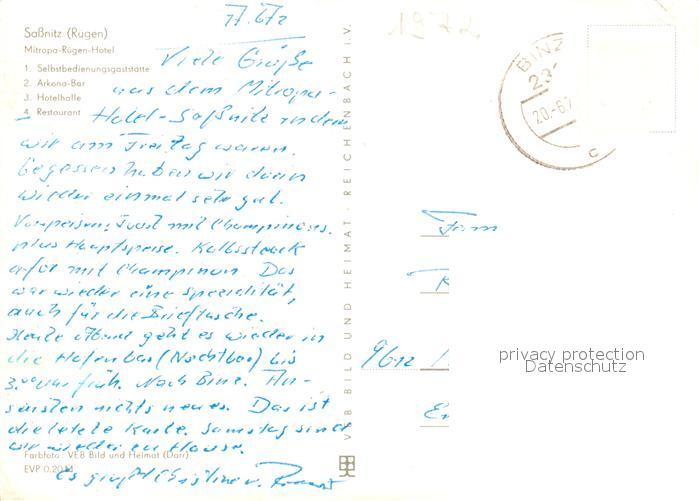 Saßnitz (Rügen)
Mitropa-Rügen-Hotel
1. Selbstbedienungsgaststätte
2. Arkona-Bar
3. Hotelhalle
4. Restaurant
1972
Viele Grüße
aus dem Mitropa-
Hotel-Saßnitz in dem
wir am Freitag waren.
gegessen haben wir darin
wieder einmal sehr gut.
Vorspeisen: Toast mit Champinons.
plus Hauptspeise. Kalbssteack
mit Champinon Das
war wieder eine Spezialität,
auch für die Brieftasche.
Heute Abend geht es wieder in
die Hafenbar (Nachtbar) bis
3.00 Uhr früh. Nach Binz. An-
sonsten nichts neues. Das ist
die letzte Karte. Samstag sind
wir wieder zu Hause.
Es grüßt Christine u.
Farbfoto: VEB Bild und Heimat (Darr)
EVP 0,20 M
VEB BILD UND HEIMAT · REICHENBACH I. V.
BINZ
20.-6.7
c
Fam
privacy protection
Datenschutz